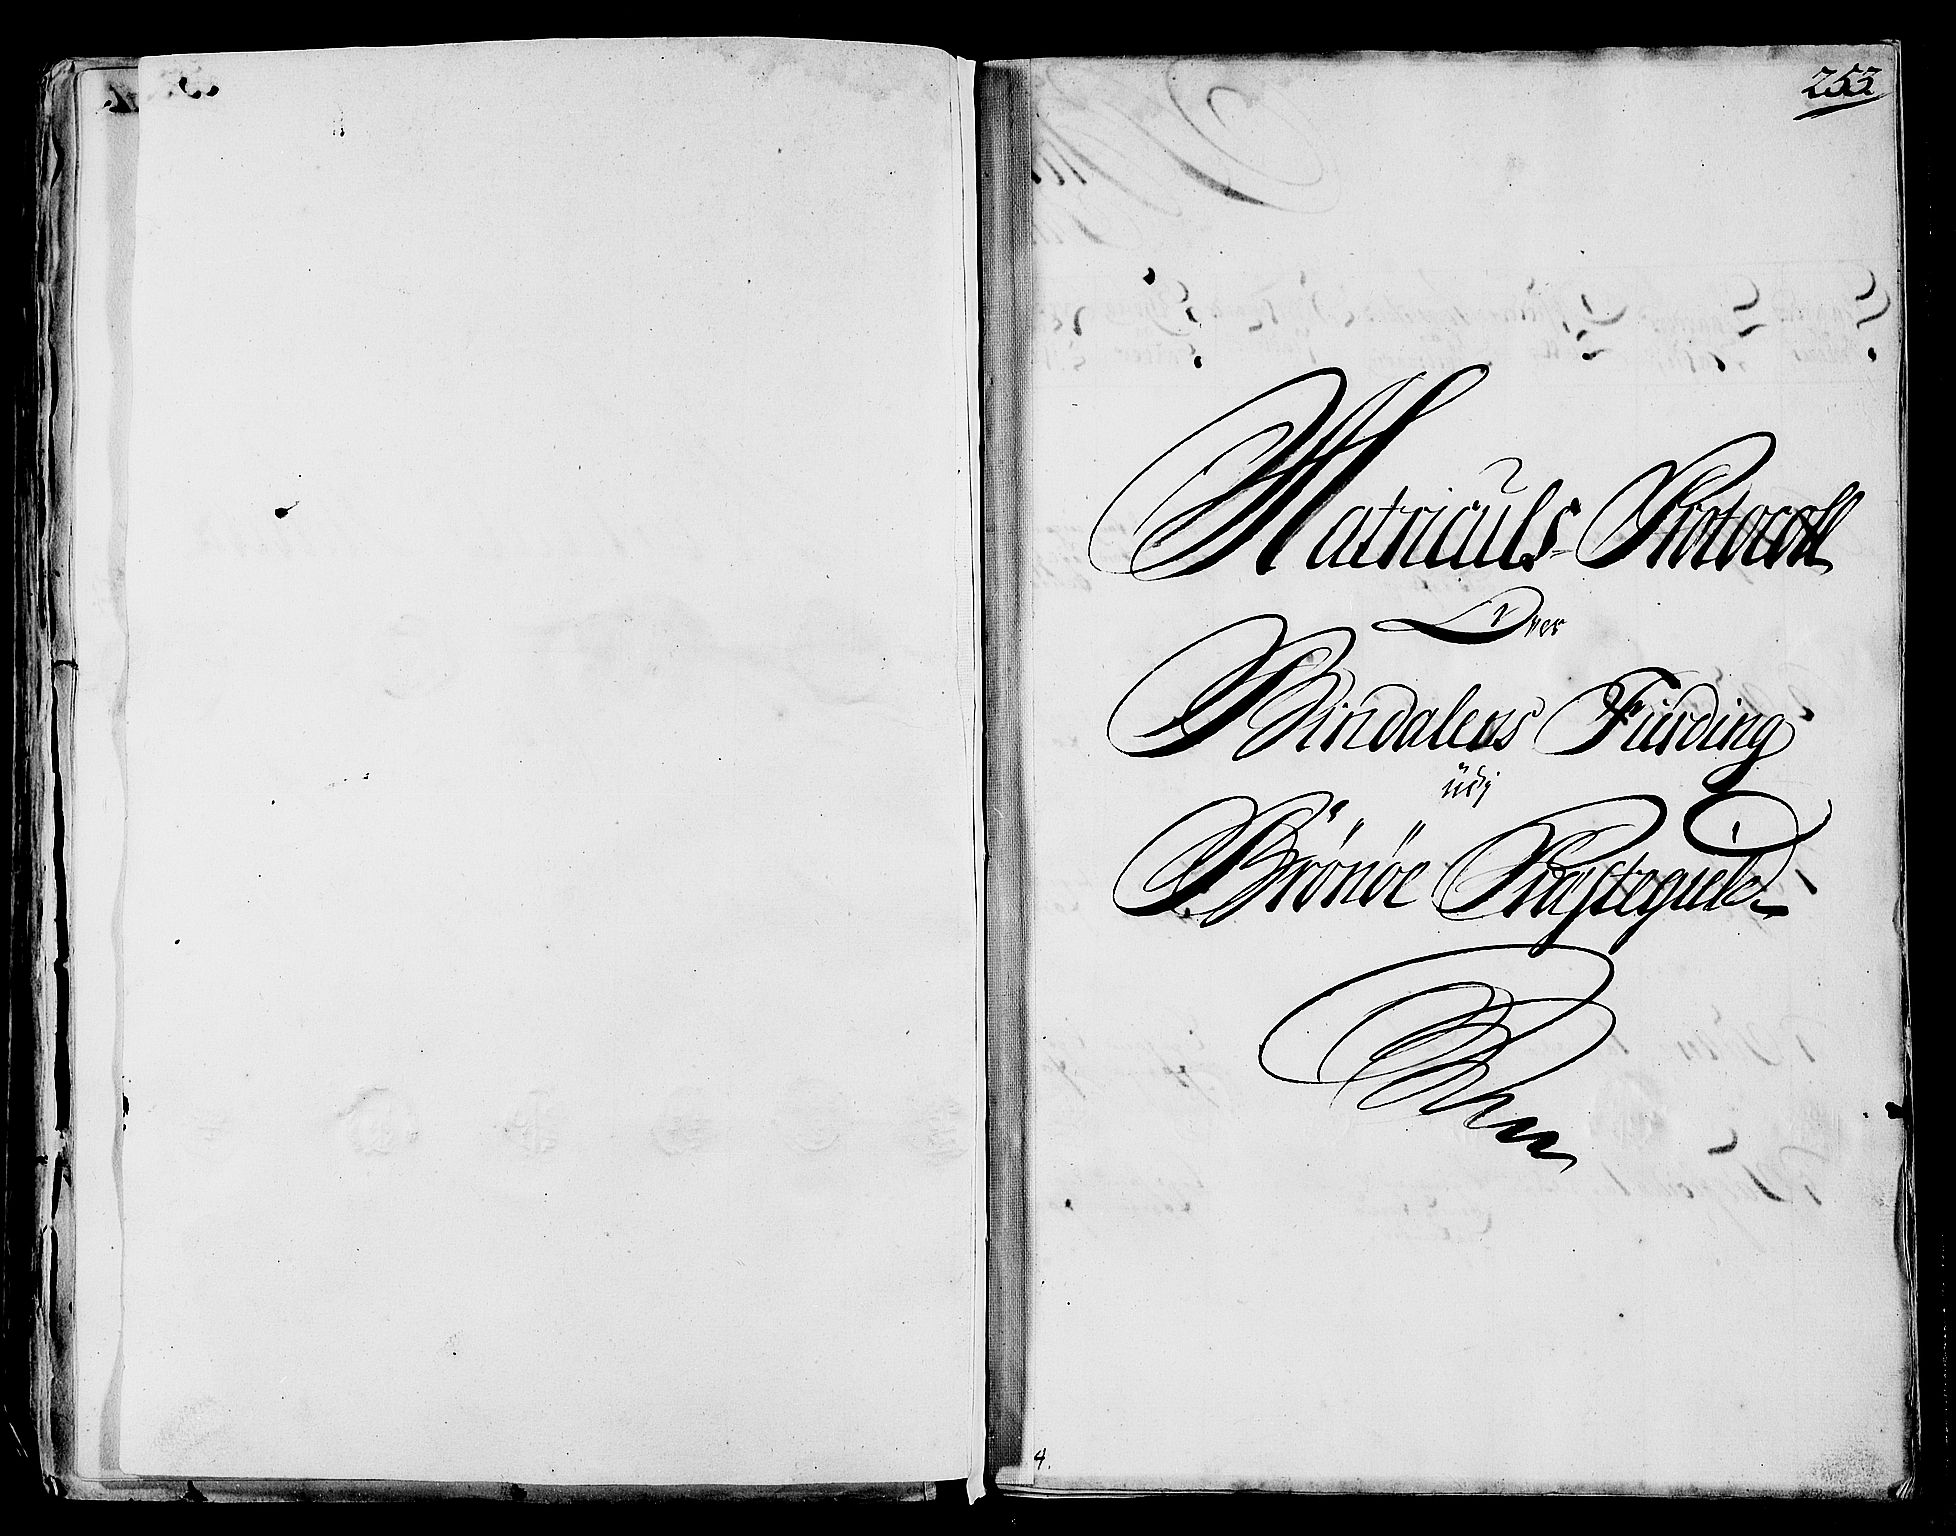 253.
Matriculs-Protocoll
Over
Bindalens Fiirding
üdj
Brönöe Præstegield
4.